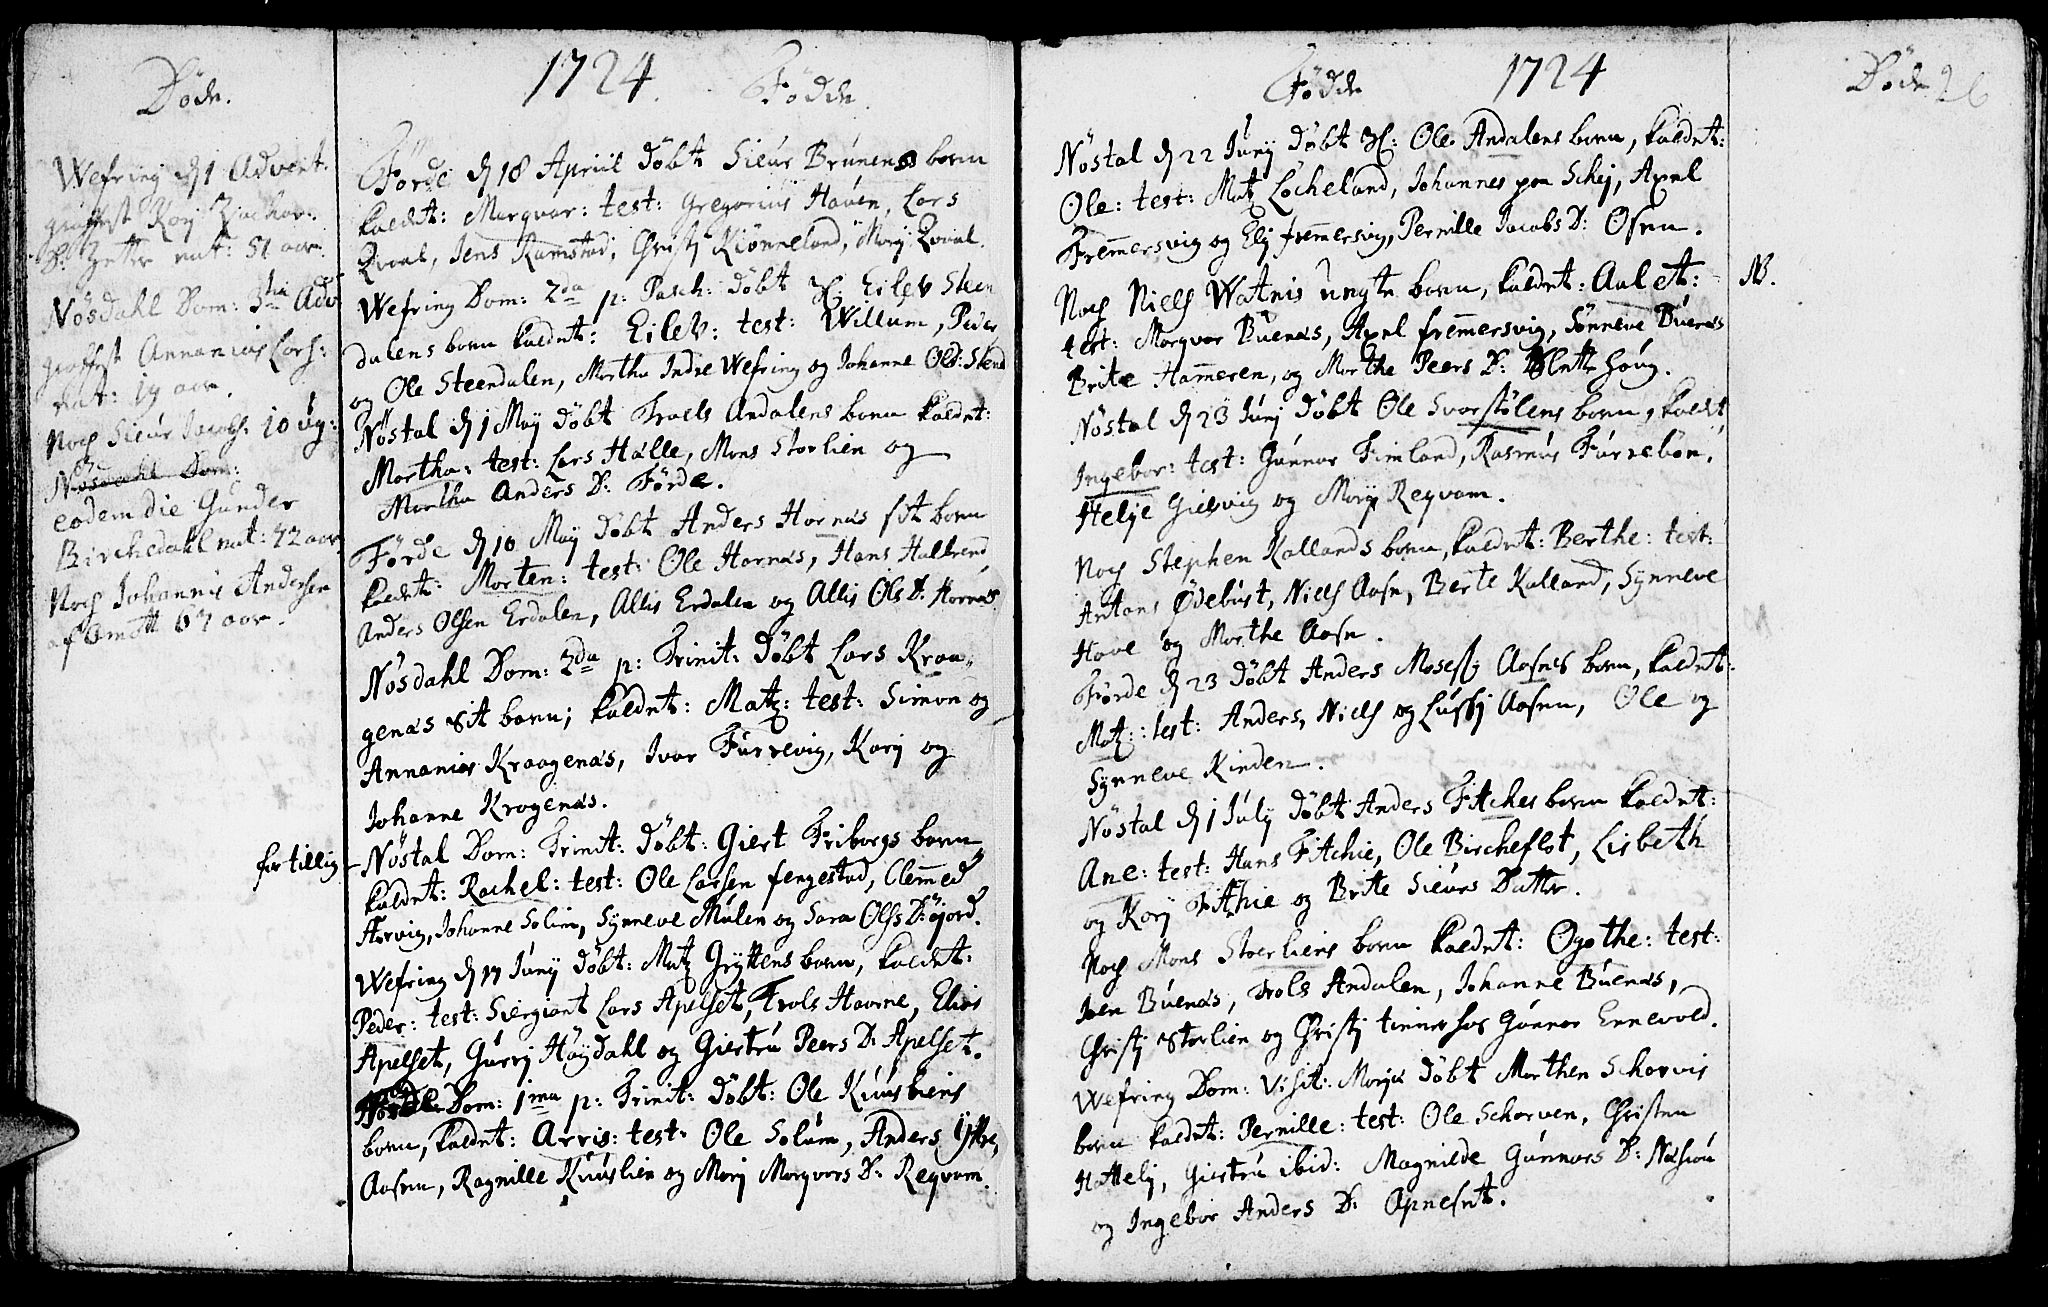 Døde.
Wefring d 1 Advent:
graffest Kari Zachar:
D: nat: 51 aar.
Nøsdahl Dom: 3tia Adv
graffest Annanias Lars:
nat: 19 aar.
Noch Sieur Jacobs: 10 ug:
Nøsdahl Dom:
eodem die Gunder
Birchedahl nat: 72 aar.
Noch Johannis Andersen
af 67 aar.
for tillig
1724. Fødde.
Førde d 18 Apriil døbt Sieur Brunens barn
kaldet: Marqvar: test: Gregorius Hauen, Lars
Qvaal, Jens Ramstad, Christj Kiønneland, Marj Qvaal.
Wefring Dom: 2da p: Pasch: døbt Eilev Steen
dalens barn kaldet: Eilev: test: Willum, Peder
og Ole Steendalen, Martha Indre Wefring og Johanne Ols: Stend
Nøstal d 1 Maij døbt Troels Andalens barn kaldet:
Martha: test: Lars Halle, Mons Storlien og
Martha Anders D: Førde.
Førde d 10 Maij døbt Anders Hornæs sit barn
kaldet: Morten: test: Ole Hornæs, Hans Halbrend
Anders Olsen Erdalen, Allis Erdalen og Allis Ols D: Hornæs.
Nøsdahl Dom: 2da p: Trinit: døbt Lars Kraa-
genæs sit barn; kaldet: Matz: test: Simon og
Annanias Kraagenæs, Ivar Furrevig, Karj og
Johanne Kragenæs.
Nøstal Dom: Trinit: døbt: Giert Friborgs barn
kaldet: Rachel: test: Ole Larsen fengestad, Clemmed
Horvig, Johanne Solim, Synneve Mulen og Sara Ols D: Gjord.
Wefring d 17 Junij døbt: Matz Gryttens barn, kaldet:
Peder: test: Siergiant Lars Apelset, Trols Haarne, Elias
Apelset, Gurrj Høydahl og Giertru Peers D: Apelset.
Dom: 1ma p: Trinit: døbt: Ole Kuusliens
barn, kaldet: Arris: test: Ole Solum, Anders Yttre
Aasen, Ragnille Kuuslien og Marj Marqvars D: Reqvam.
Fødde 1724
Nøstal d 22 Junij døbt Ole Andalens barn, kaldet:
Ole: test: Matz Løcheland, Johannes paa Schej, Axel
Fremmersvig og Elj fremmersvig, Pernille Jacobs D: Osen.
Noch Niels Watnis ungte barn, kaldet: Aalet:
test: Marqvar Buenæs, Axel fremmersvig, Sønneve Buenæs
Brite Hammeren, og Marthe Peers D: Slettehoug.
Nøstal d 23 Junj døbt Ole Svorstølens barn, kaldet
Ingebor: test: Gunnar Fimland, Rasmus Furrebøn,
Helje Gielsvig og Marj Reqvam.
Noch Stephen Kallands barn, kaldet: Berthe: test:
Antans Ødebust, Niels Aasn, Berte Kalland, Synneve
Hove og Marthe Aasn.
Førde d 23 døbt Anders Moses: Aasnes barn, kaldet:
Matz: test: Anders, Niels og Lussj Aasen, Ole og
Synneve Kinden.
Nøstal d 1 July døbt Anders Fitches barn kaldet:
Ane: test: Hans Fitchie, Ole Bircheflot, Lisbeth
og Karj Fithie og Brite Sieurs Datter.
Noch Mons Storliens barn kaldet: Ogothe: test:
Joen Buenæs, Trols Andalen, Johanne Buenæs,
Christj Storlien og Christj tienner hos Gunnar Ennevold.
Wefring Dom: Visit: Mariæ døbt Morthen Schorvis
barn kaldet: Pernille: test: Ole Schorven, Christen
Hattelj, Giertru ibid: Magnilde Gunnars D:
og Ingebor Anders D: Apneset.
Døde 26
NB.